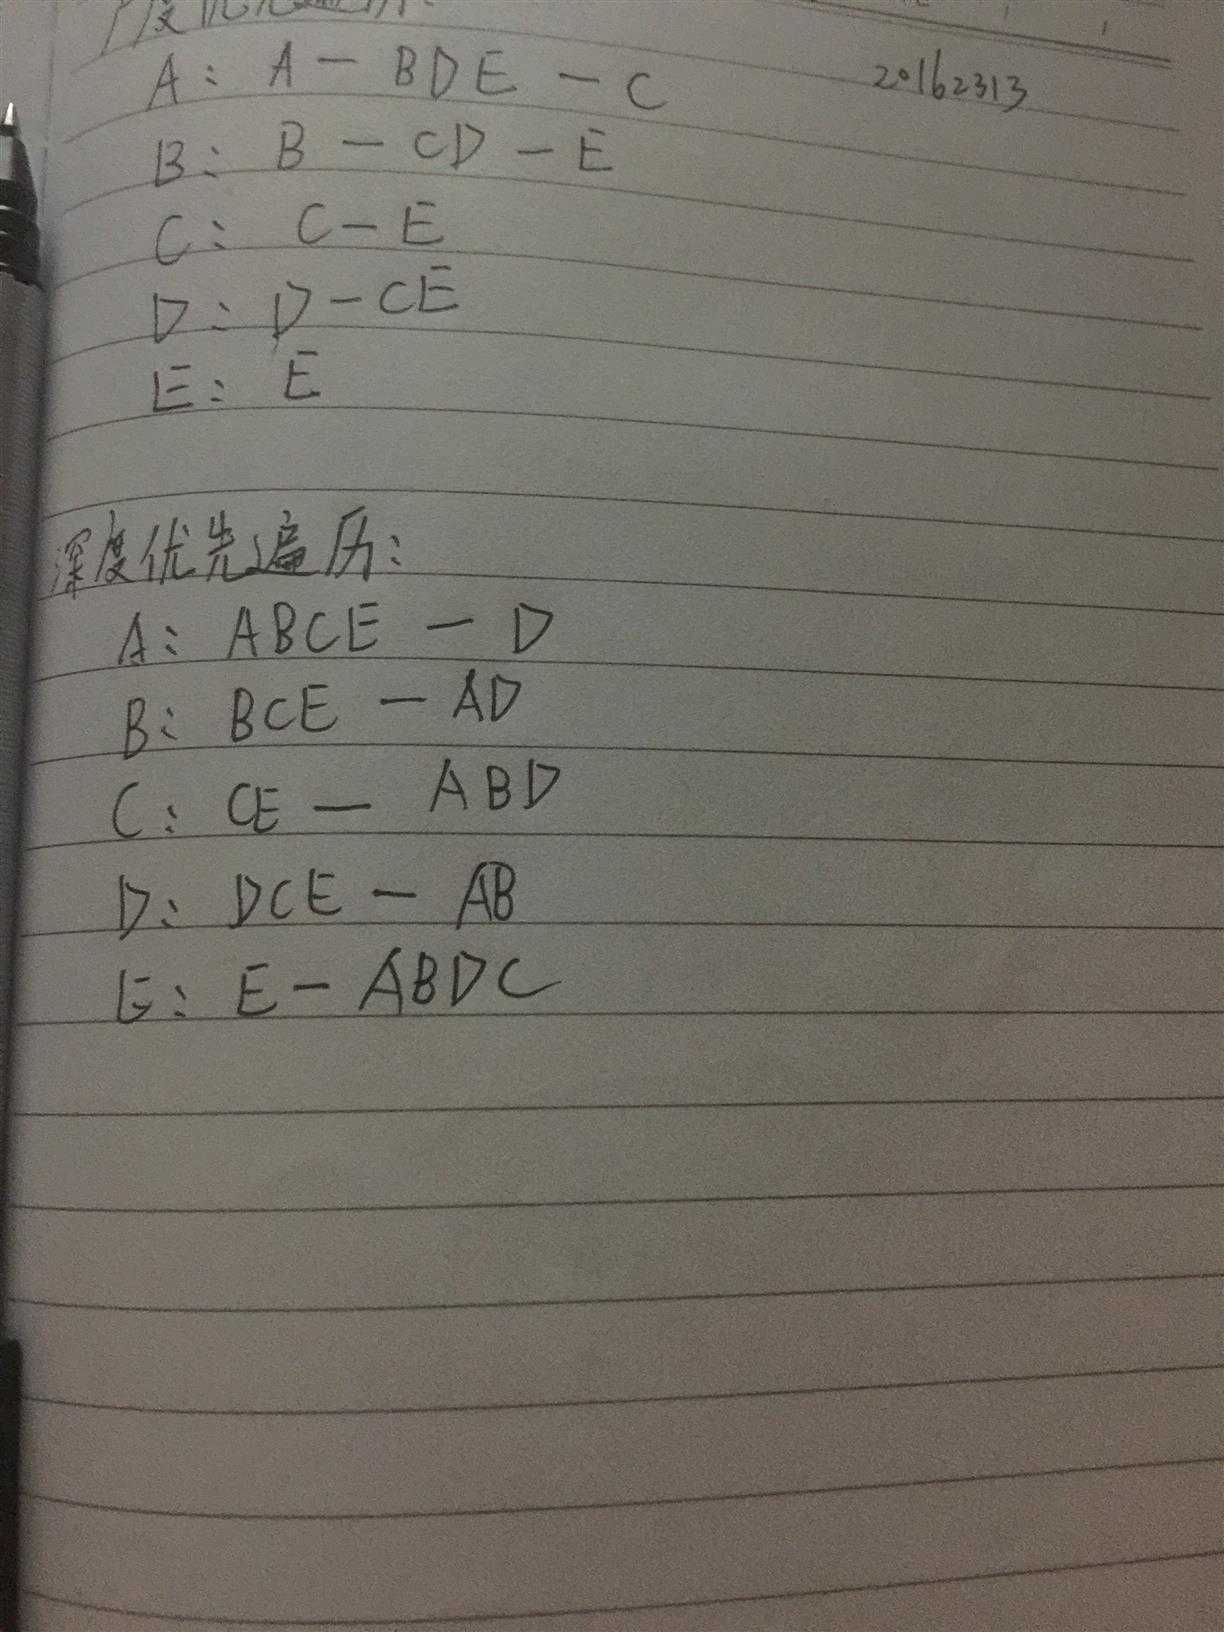 广度优先遍历:
A: A - BDE - C 20162313
B: B - CD - E
C: C - E
D: D - CE
E: E
深度优先遍历:
A: ABCE - D
B: BCE - AD
C: CE - ABD
D: DCE - AB
E: E - ABDC